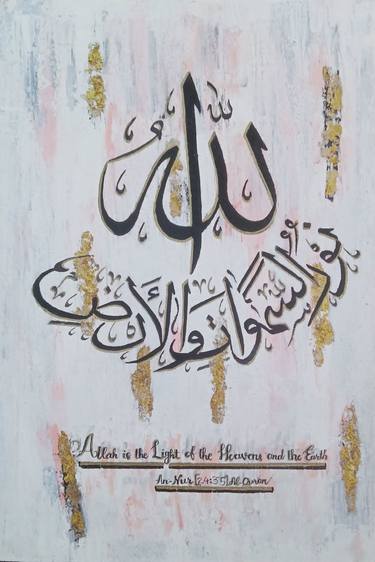 الله
نور السموات والأرض
Allah is the Light of the Heavens and the Earth
An-Nur [24:35] Al-Quran